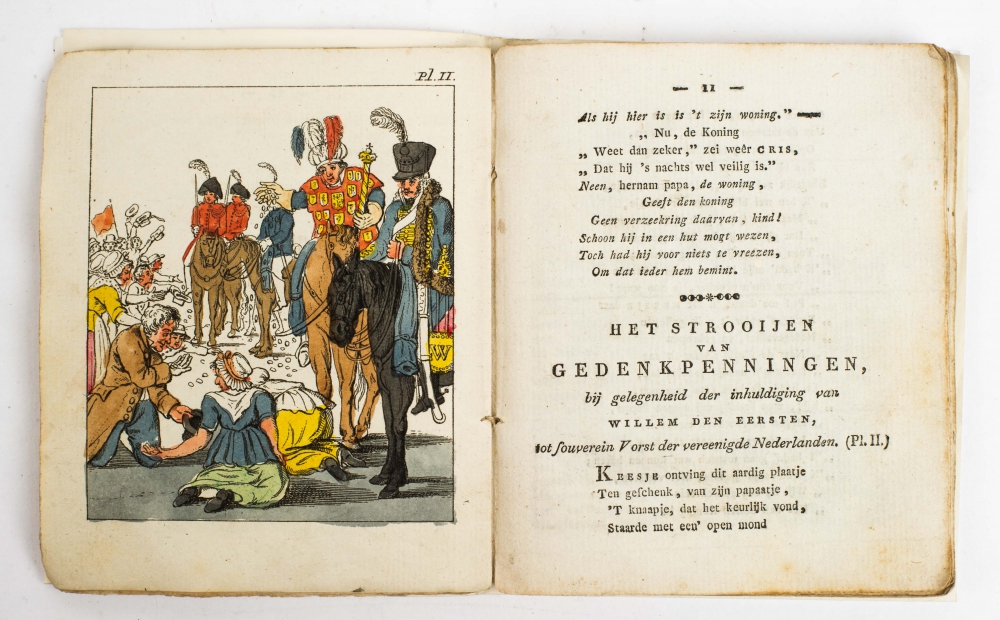 Pl. II.
W
— 11 —
Als hij hier is is 't zijn woning." —
„ Nu, de Koning
„ Weet dan zeker," zei weêr CRIS,
„ Dat hij 's nachts wel veilig is."
Neen, hernam papa, de woning,
Geeft den koning
Geen verzeekring daarvan, kind!
Schoon hij in een hut mogt wezen,
Toch had hij voor niets te vreezen,
Om dat ieder hem bemint.
HET STROOIJEN
VAN
GEDENKPENNINGEN,
bij gelegenheid der inhuldiging van
WILLEM DEN EERSTEN,
tot ſouverein Vorst der vereenigde Nederlanden. (Pl. II.)
KEESJE ontving dit aardig plaatje
Ten geſchenk, van zijn papaatje,
'T knaapje, dat het keurlijk vond,
Staarde met een' open mond